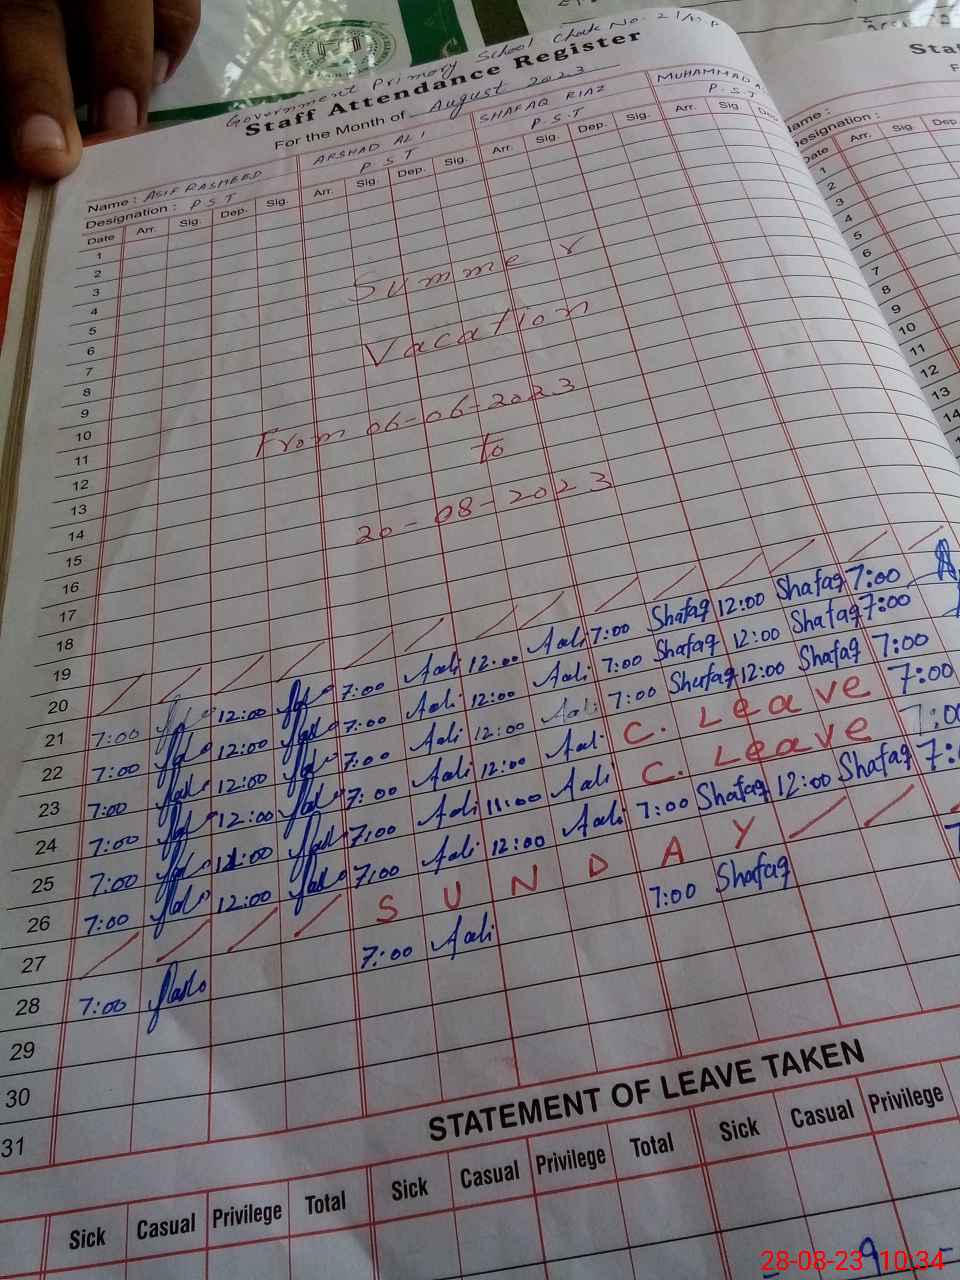 Government Primary School Chak No. 21
Staff Attendance Register
For the Month of August 2023
Name : ASIF RASHEED ARSHAD ALI SHAFAQ RIAZ MUHAMMAD
Designation : P S T P S T P.S.T P.S.T
Date Arr. Sig. Dep. Sig. Arr. Sig. Dep. Sig. Arr. Sig. Dep. Sig. Arr. Sig. Dep.
1
2
3
4
5
6
7
8
9
10
11
12
13
14
15
16
17
18
19
20
Summer
Vacation
From 06-06-2023
to
20-08-2023
21 7:00 12:00 7:00 Aali 12:00 Aali 7:00 Shafaq 12:00 Shafaq 7:00
22 7:00 12:00 7:00 Aali 12:00 Aali 7:00 Shafaq 12:00 Shafaq 7:00
23 7:00 12:00 7:00 Aali 12:00 Aali 7:00 Shafaq 12:00 Shafaq 7:00
24 7:00 12:00 7:00 Aali 12:00 Aali C. Leave 7:00
25 7:00 7:00 Aali 11:00 Aali C. Leave 7:00
26 7:00 12:00 7:00 Aali 12:00 Aali 7:00 Shafaq 12:00 Shafaq
27 SUNDAY
28 7:00 7:00 Aali 7:00 Shafaq
29
30
31
STATEMENT OF LEAVE TAKEN
Sick Casual Privilege Total Sick Casual Privilege Total Sick Casual Privilege
9
Name :
Designation :
Date Arr. Sig. Dep.
1
2
3
4
5
6
7
8
9
10
11
12
13
14
28-08-23 10:34